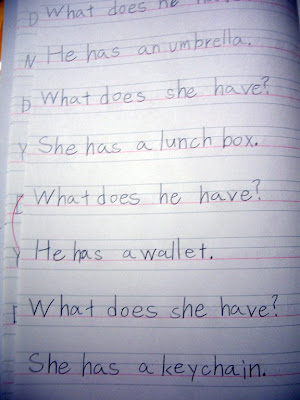 D What does he have?
N He has an umbrella.
D What does she have?
Y She has a lunch box.
I What does he have?
Y He has a wallet.
I What does she have?
She has a keychain.